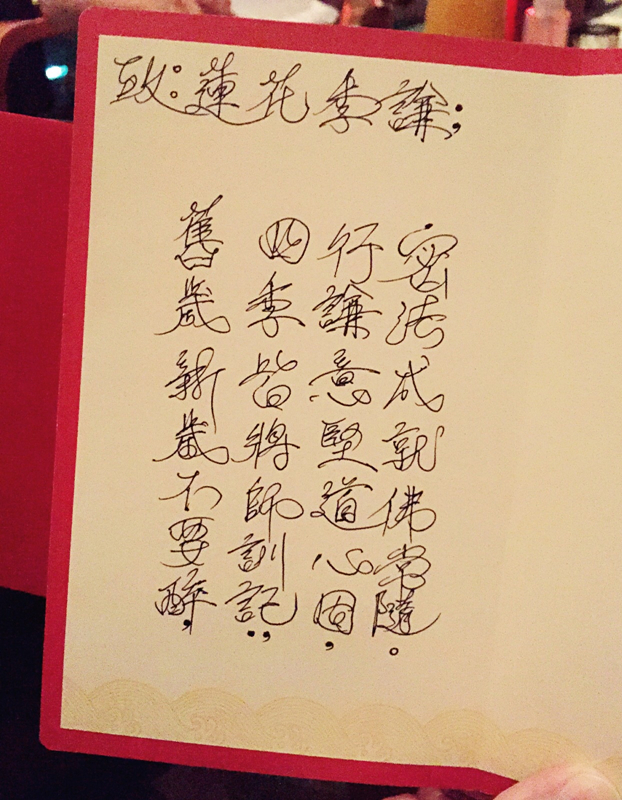 致：蓮花季謙；
舊歲新歲不要醉，
四季皆將師訓記；
行謙意堅道心固，
密法成就佛常隨。